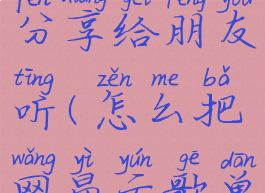 fēn xiǎng gěi péng yǒu
分享给朋友
tīng zěn me bǎ
听(怎么把
wǎng yì yún gē dān
网易云歌单